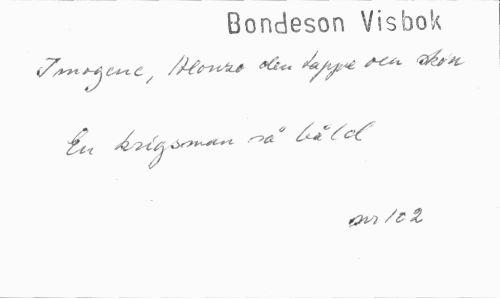 Bondeson Visbok
Imogene, Alonzo den tappre och skön
En krigsman så båld
nr 102